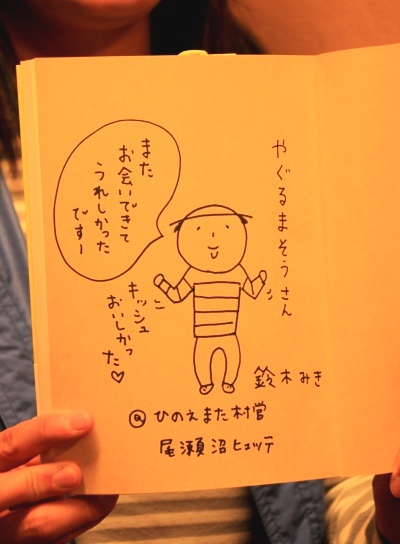 やぐるまそうさん
また
お会いできて
うれしかった
ですー
キッシュ
おいしかっ
た♡
鈴木みき
@ひのえまた村営
尾瀬沼ヒュッテ